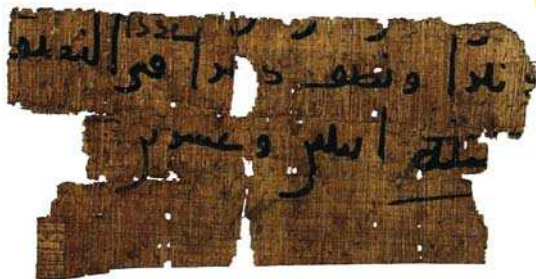 دينرا ونصف دينرا في النصف
سنة اثنين وعشرين